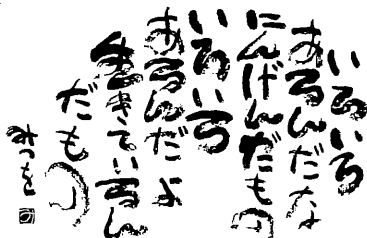 いろいろ
あるんだな
にんげんだもの
いろいろ
あるんだよ
生きているん
だもの
みつを